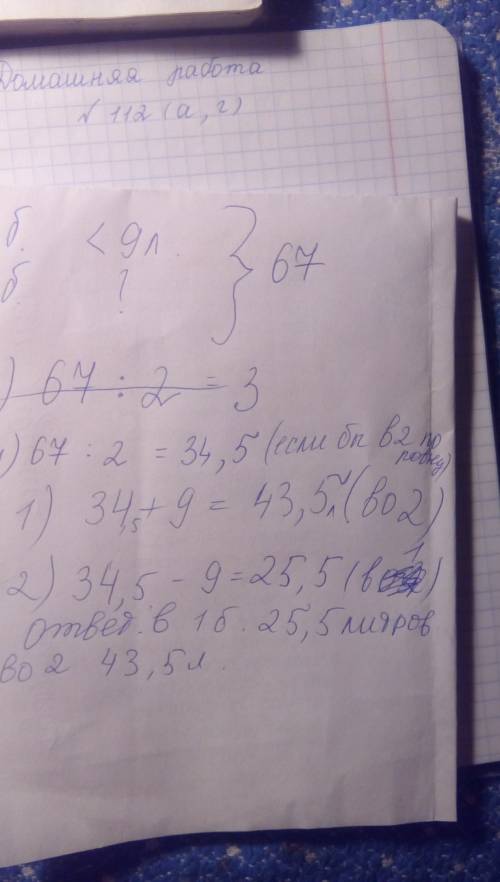 Домашняя работа
№ 112 (а, г)
б. < 9л. } 67
б. ?
) 67 : 2 = 3
) 67 : 2 = 34,5 (если бы в 2 по ровну)
1) 34,5 + 9 = 43,5л (во 2)
2) 34,5 - 9 = 25,5 (в 1)
Ответ: в 1 б. 25,5 литров
во 2 43,5 л.